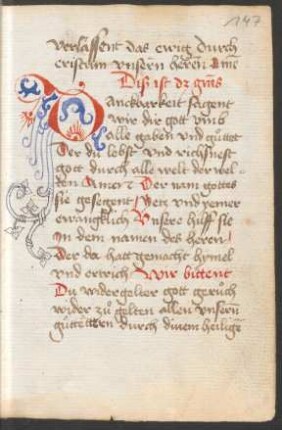 147
verlassent das ewig durch
cristum unsren heren Ame
Diss ist dz gras
Danckbarkeit sagent
wir dir gott umb
alle gaben und guttet
Der du lebst und richsnest
gott durch alle welt der wel-
den Amen Der nam gottes
sie gesegent Yetz und yemer
ewangklich Unsere hilff sie
In dem namen des heren
Der da hatt gemacht hymel
und ertrich Wir bittent
Du widergelter gott geruch
wider zu gelten allen unsern
guttettren durch dinem heilige